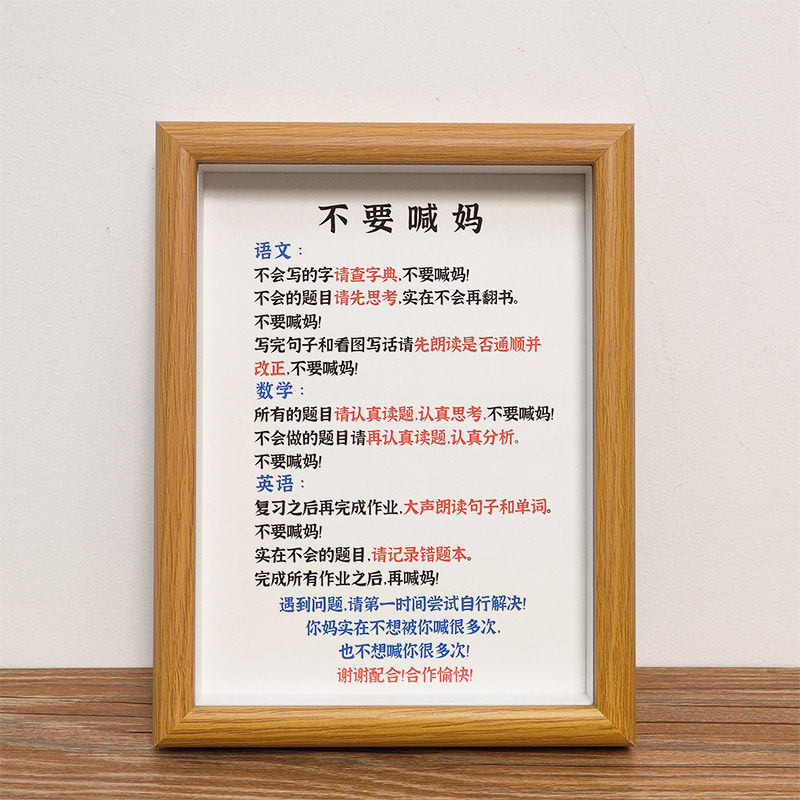 不要喊妈
语文：
不会写的字请查字典,不要喊妈!
不会的题目请先思考,实在不会再翻书。
不要喊妈!
写完句子和看图写话请先朗读是否通顺并
改正,不要喊妈!
数学：
所有的题目请认真读题,认真思考,不要喊妈!
不会做的题目请再认真读题,认真分析。
不要喊妈!
英语：
复习之后再完成作业,大声朗读句子和单词。
不要喊妈!
实在不会的题目,请记录错题本。
完成所有作业之后,再喊妈!
遇到问题,请第一时间尝试自行解决!
你妈实在不想被你喊很多次,
也不想喊你很多次!
谢谢配合!合作愉快!